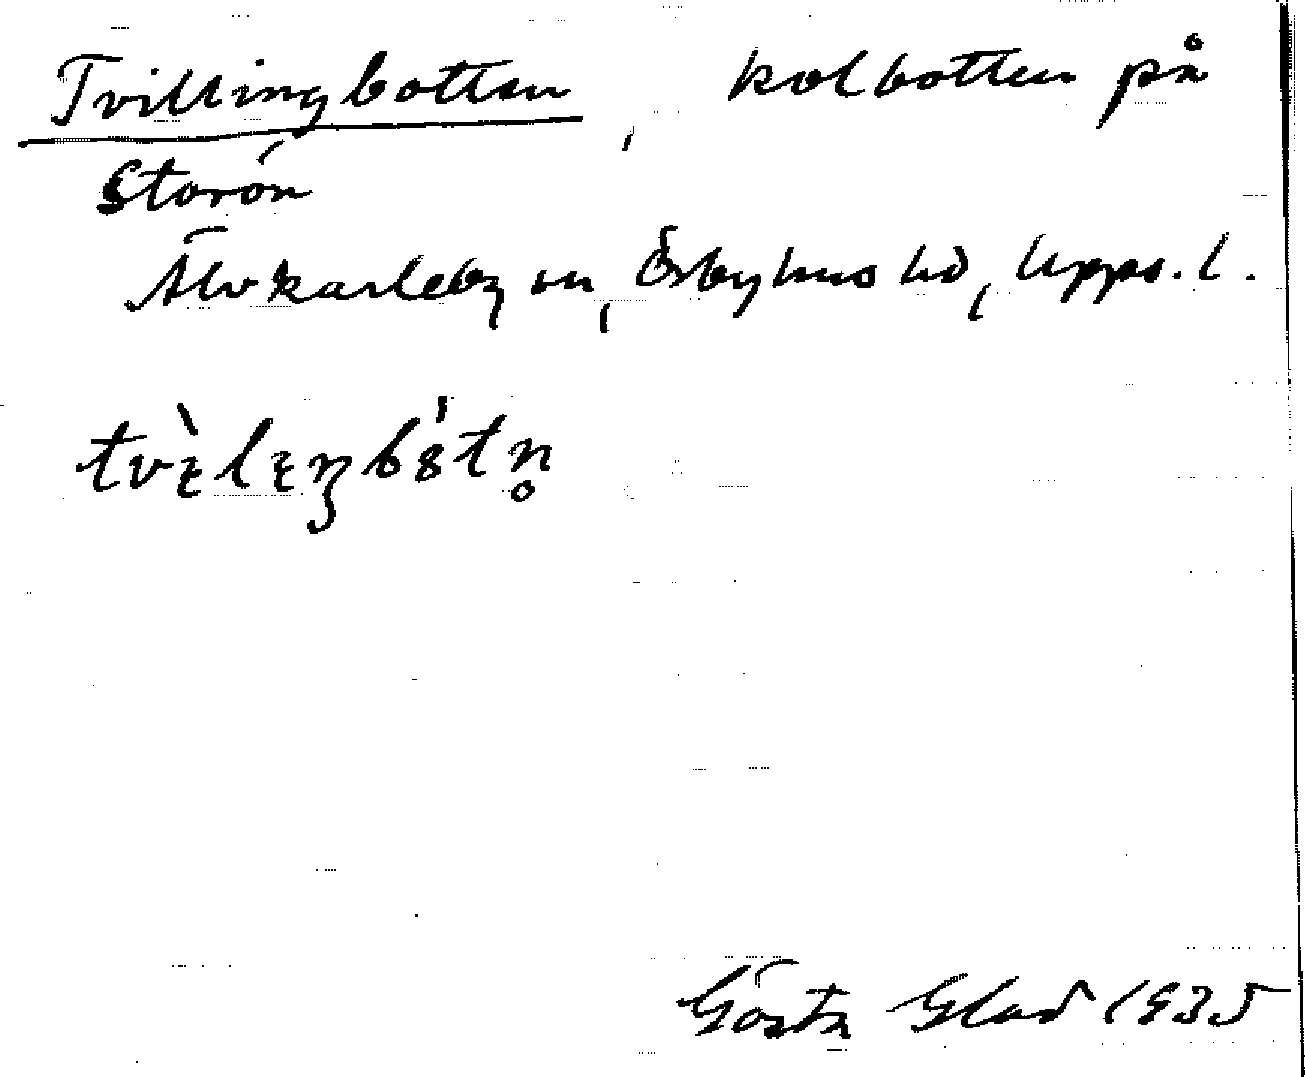 Tvillingbotten, kolbotten på
Storön
Älvkarleby sn, Örbyhus hd, Upps. l.
Gösta Glad 1935